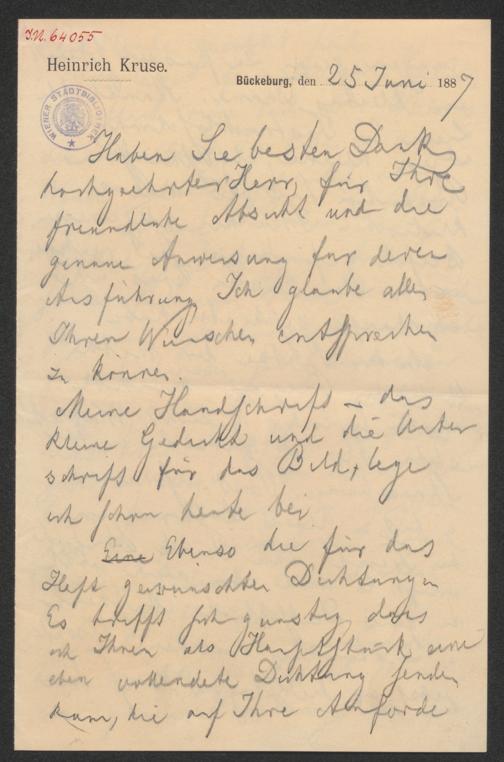 J.N. 64055
Heinrich Kruse.
Bückeburg, den 25 Juni 1887
WIENER STADTBIBLIOTHEK
Haben Sie besten Dank,
hochgeehrter Herr, für Ihre
freundliche Absicht und die
genaue Anweisung für deren
Ausführung. Ich glaube allen
Ihren Wünschen entsprechen
zu können.
Meine Handschrift – das
kleine Gedicht und die Unter
schrift für das Bild, lege
ich schon heute bei
Eine Ebenso die für das
Heft gewünschten Dichtungen
Es trifft sich günstig, dass
ich Ihnen als Hauptstück eine
eben vollendete Dichtung senden
kann, die auf Ihre Anforde